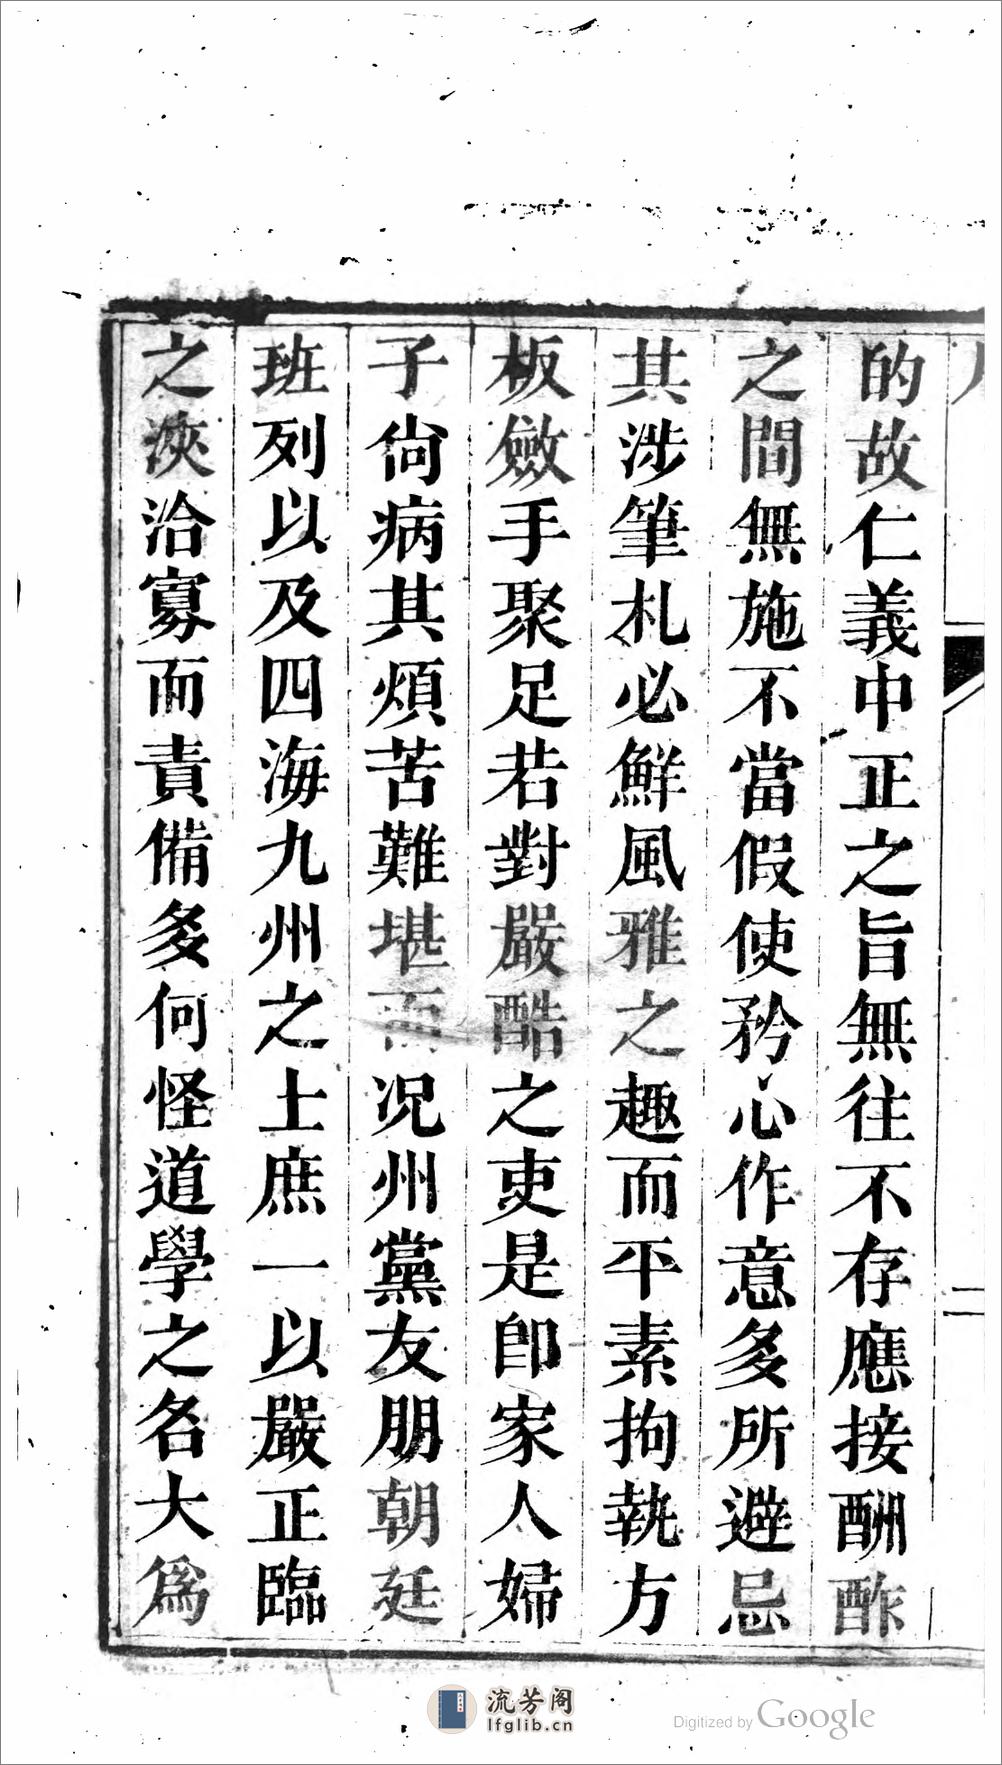 的故仁義中正之旨無往不存應接酬酢
之間無施不當假使矜心作意多所避忌
其涉筆札必鮮風雅之趣而平素拘執方
板斂手聚足若對嚴酷之吏是卽家人婦
子尙病其煩苦難堪而况州黨友朋朝廷
班列以及四海九州之士庶一以嚴正臨
之浹洽寡而責備多何怪道學之名大爲
二
流芳阁
lfglib.cn
Digitized by Google